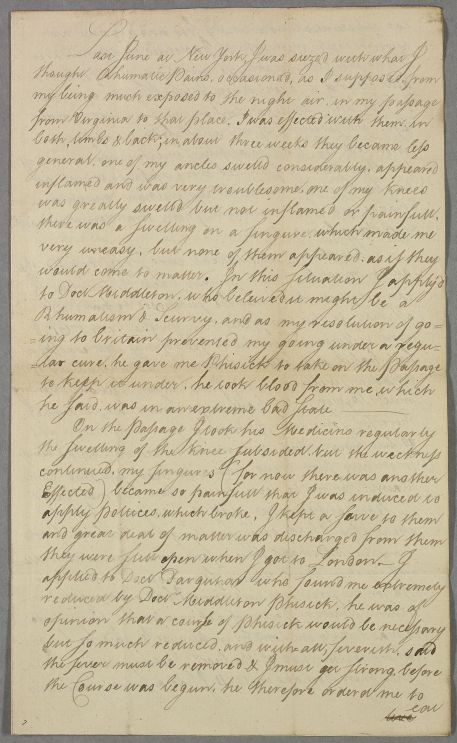 Last June at New York, I was siezed with what I
thought Rhumatic Pains, occasioned, as I suppose, from
my being much exposed to the night air in my passage
from Virginia to that place. I was effected with them in
both, limbs & back; in about three weeks they became less
general. one of my ancles swell'd considerably, appeared
inflamed and was very troublesome, one of my knees
was greatly swelld but not inflamed or painfull.
there was a swelling on a fingure, which made me
very uneasy, but none of them appeared as if they
would come to matter. In this Situation I apply'd
to Doct Middleton, who beleved it might be a
Rhumatism & Scurvy, and as my resolution of go=
ing to Britain prevented my going under a regu=
=lar cure, he gave me Phisick to take on the Passage
to keep it under, he took blood from me, which
he said, was in an extreme bad State
On the Passage I took his Medicine regularly
the swelling of the Knee subsided but the weekness
continued, my fingures (for now there was another
Effected) became so painfull that I was induced to
apply Poltices, which broke. I kept a to them
and great deal of matter was discharged from them
they were still open when I got to London. I
applied to Doct Farquhar who found me extremely
reduced by Doct Middleton Phisick, he was of
opinion that a course of Phisick would be necessary
but so much reduced, and withall, feverish, said
the fever must be removed & I must get strong before
the Course was begun, he therefore orderd me to
eat